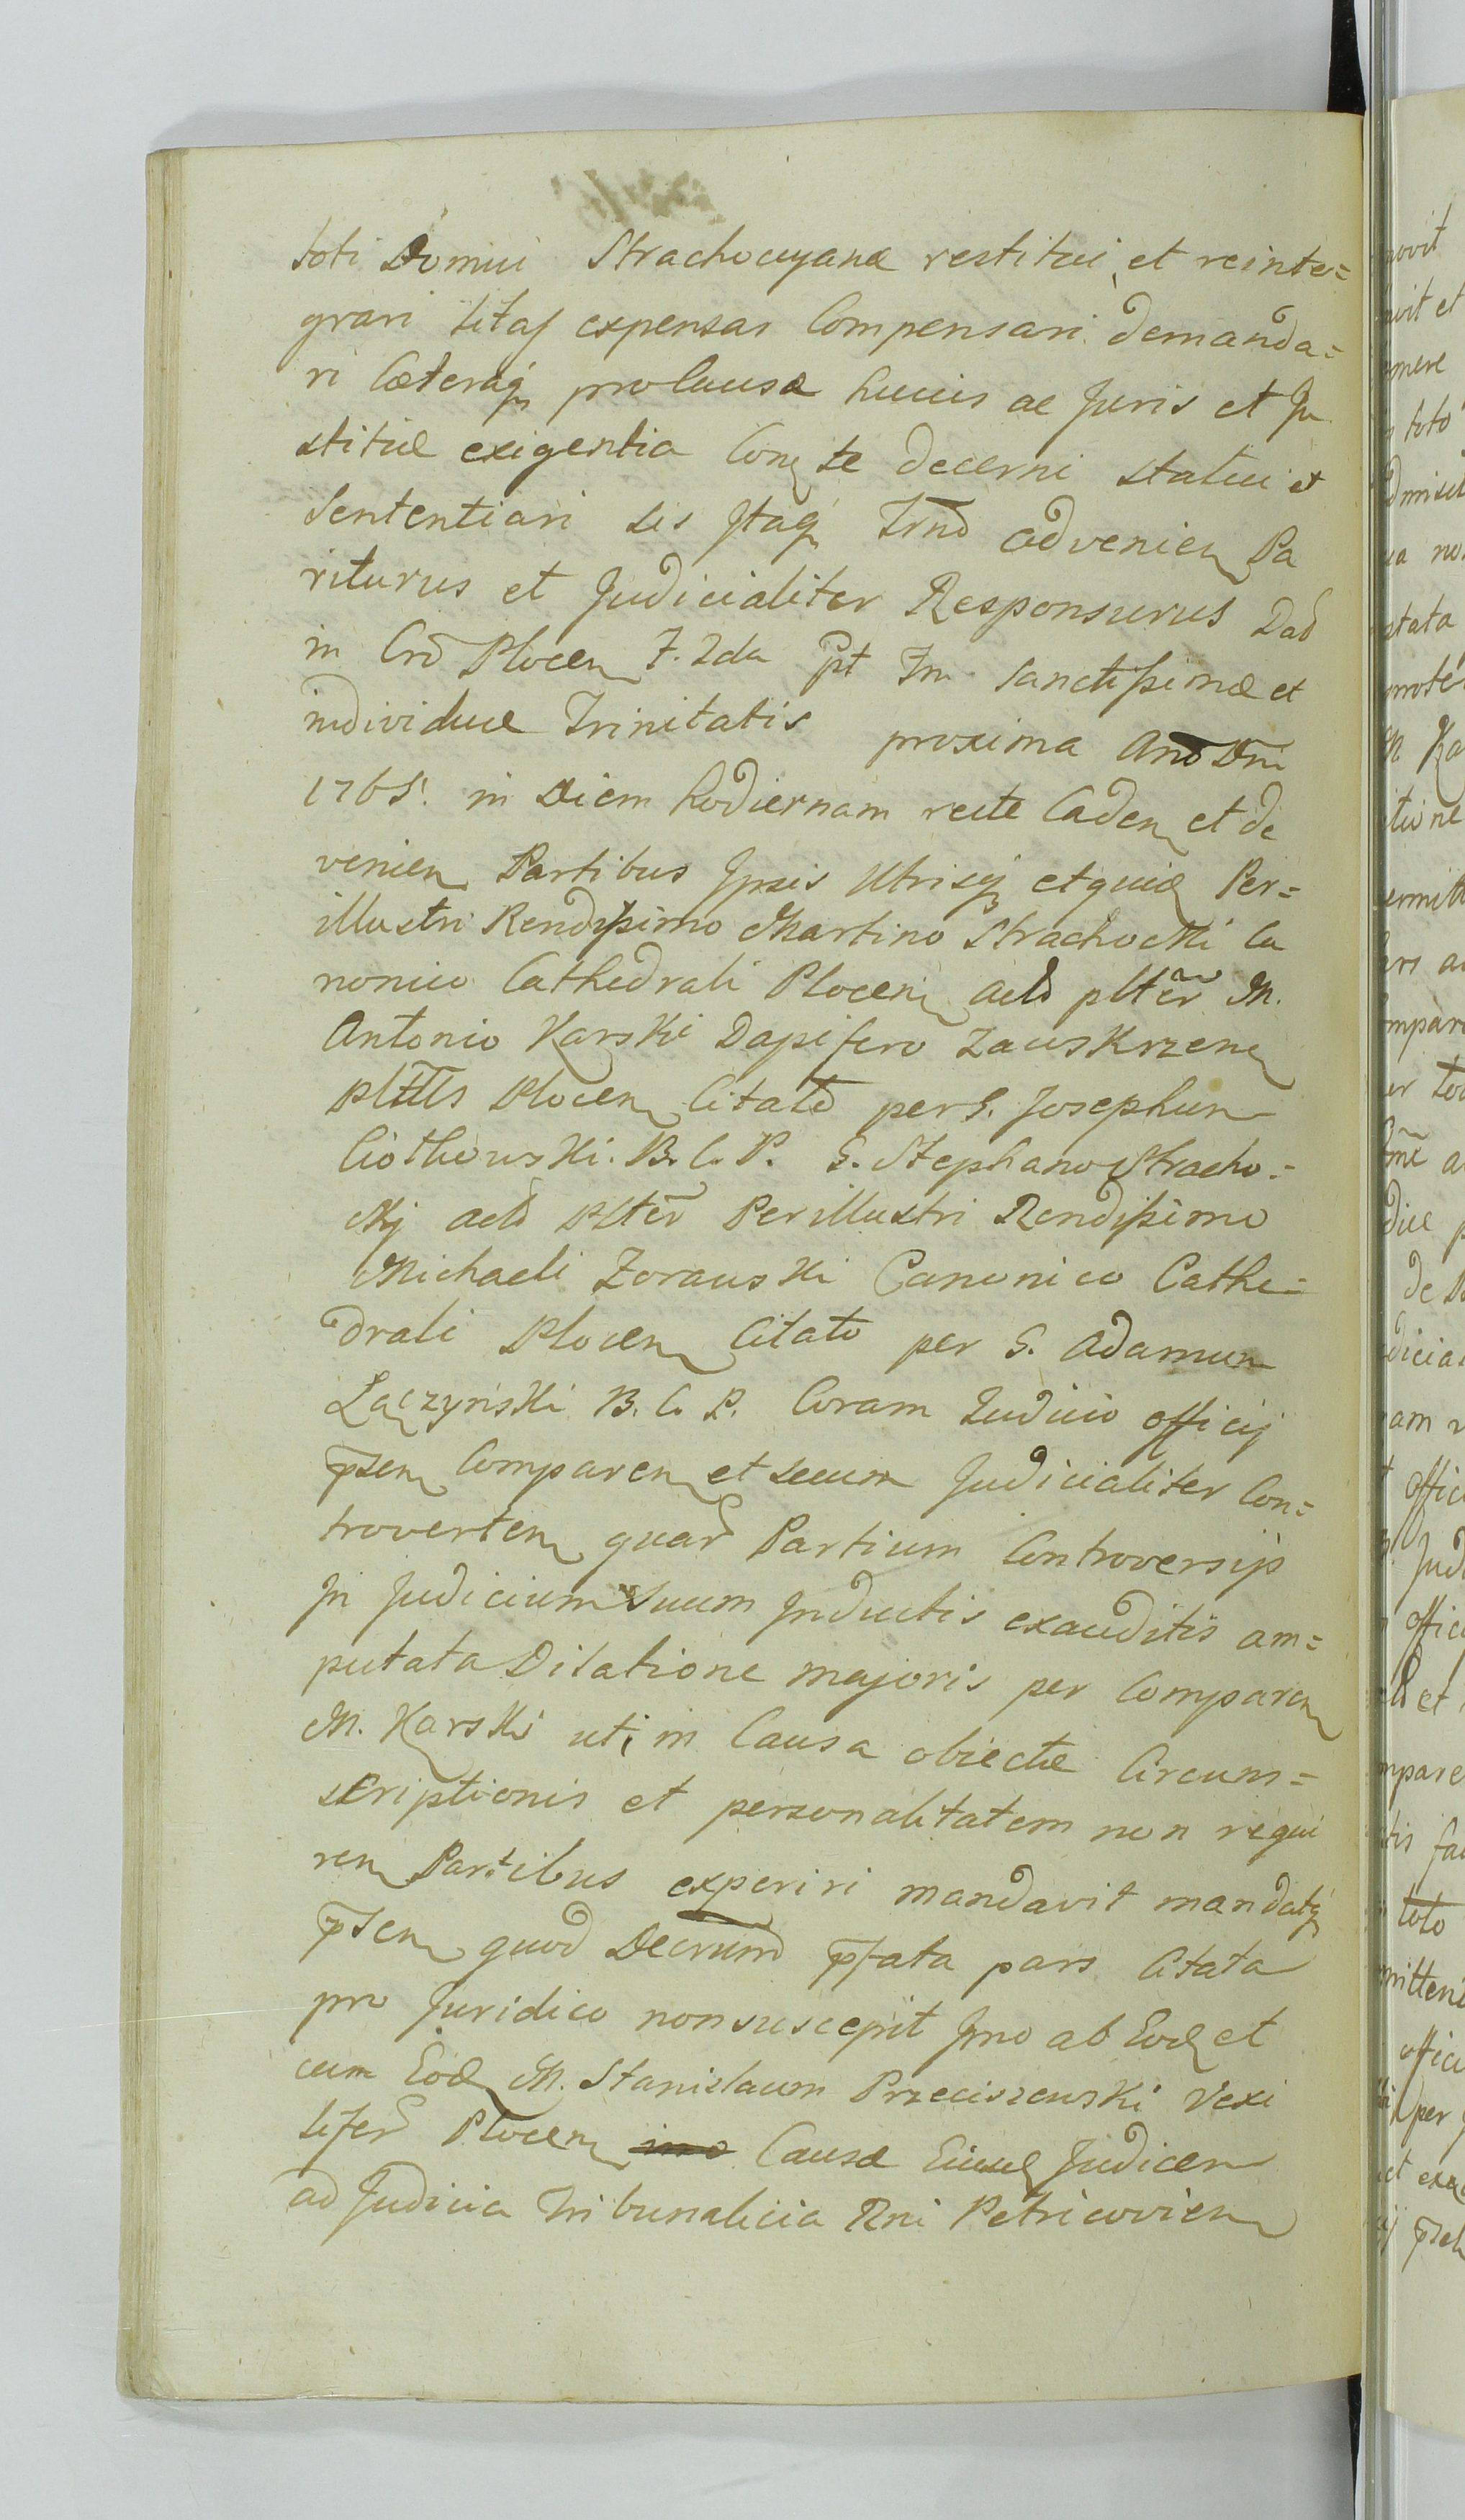 toti Domui Strachocyanæ restitui, et reinte=
grari litaſ expensas Compensari demanda=
ri Cæteraq̃ pro Causæ huius ac Juris et Ju
stitiæ exigentia Con te decerni statui et
Sententiari sis Itaq̃ Trnõ advenien Pa
riturus et Judicialiter Responsurus Dab
in Crõ Plocen F. 2da pt Fm Sanctissimæ et
individuæ Trinitatis proxima Anõ Dni
1765. in Diem hodiernam recte Caden et de
venien Partibus Ipsis Utrisq̃ et quid Per=
illustri Rendissimo Martino Strachocki Ca
nonico Cathedrali Plocen actõ pltẽr M.
Antonio Karski Dapifero Zawskrzenẽ
pltũs Plocen Citatõ per G. Josephum
Ciotkowski B. C. P. G. Stephano Stracho=
ckj actõ pltẽr Perillustri Rendissimo
Michaeli Zorawski Canonico Cathe=
drali Plocen Citato per G. Adamum
Łączyński B. C. P. Coram Judicio officij
p̃sen Comparen et secum Judicialiter Con=
troverten quar Partium Controversijs
In Judicium Suum Inductis exauditis am=
putata Dilatione majoris per Comparen
M. Karski uti in Causa obiectæ Circum=
scriptionis et personalitatem non requi
ren Partibus experiri mandavit mandatq̃
p̃sen quod Decrum p̃fata pars Citata
pro Juridico non suscepit Imo ab Eod et
cum Eod M. Stanislaum Przeciszewski Vexi
lifer Plocen Causæ Eiusd Judicem
ad Judicia Tribunalicia Rni Petricovien